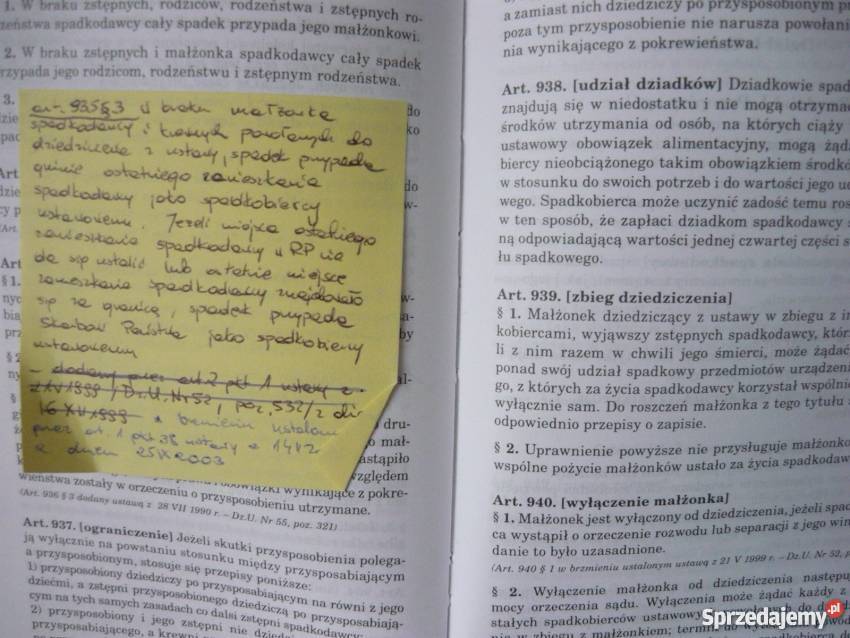 1. W braku zstępnych, rodziców, rodzeństwa i zstępnych ro-
zeństwa spadkodawcy cały spadek przypada jego małżonkowi.
2. W braku zstępnych i małżonka spadkodawcy cały spadek
rzypada jego rodzicom, rodzeństwu i zstępnym rodzeństwa.
3.
art. 935 § 3 W braku małżonka
spadkodawcy i krewnych powołanych do
dziedziczenia z ustawy, spadek przypada
gminie ostatniego zamieszkania
spadkodawcy jako spadkobiercy
ustawowemu. Jeżeli miejsca ostatniego
zamieszkania spadkodawcy w RP nie
da się ustalić lub ostatnie miejsce
zamieszkania spadkodawcy znajdowało
się za granicą, spadek przypada
Skarbowi Państwa jako spadkobiercy
ustawowemu
- dodany przez art. 2 pkt 1 ustawy z
Dz.U. Nr 52, poz. 532/z dn
w brzmieniu ustalonym
przez art. 1 pkt 38 ustawy
z dnia
względem
wieństwa zostały w orzeczeniu o przysposobieniu utrzymane.
(Art. 936 § 3 dodany ustawą z 28 VII 1990 r. – Dz.U. Nr 55, poz. 321)
Art. 937. [ograniczenie] Jeżeli skutki przysposobienia polega-
ją wyłącznie na powstaniu stosunku między przysposabiającym
a przysposobionym, stosuje się przepisy poniższe:
1) przysposobiony dziedziczy po przysposabiającym na równi z jego
dziećmi, a zstępni przysposobionego dziedziczą po przysposabiają-
cym na tych samych zasadach co dalsi zstępni spadkodawcy;
2) przysposobiony i jego zstępni nie dziedziczą
przysposabiającego, a krewni
a zamiast nich dziedziczy po przysposobionym
poza tym przysposobienie nie narusza powołani
nia wynikającego z pokrewieństwa.
Art. 938. [udział dziadków] Dziadkowie spad
znajdują się w niedostatku i nie mogą otrzyma
środków utrzymania od osób, na których ciąży
ustawowy obowiązek alimentacyjny, mogą żąda
biercy nieobciążonego takim obowiązkiem środkó
w stosunku do swoich potrzeb i do wartości jego ud
wego. Spadkobierca może uczynić zadość temu ros
w ten sposób, że zapłaci dziadkom spadkodawcy
ną odpowiadającą wartości jednej czwartej części s
łu spadkowego.
Art. 939. [zbieg dziedziczenia]
§ 1. Małżonek dziedziczący z ustawy w zbiegu z in
kobiercami, wyjąwszy zstępnych spadkodawcy, któr
li z nim razem w chwili jego śmierci, może żądać
ponad swój udział spadkowy przedmiotów urządzeni
go, z których za życia spadkodawcy korzystał wspólnie
wyłącznie sam. Do roszczeń małżonka z tego tytułu
odpowiednio przepisy o zapisie.
§ 2. Uprawnienie powyższe nie przysługuje małżonko
wspólne pożycie małżonków ustało za życia spadkodaw
Art. 940. [wyłączenie małżonka]
§ 1. Małżonek jest wyłączony od dziedziczenia, jeżeli spad
ca wystąpił o orzeczenie rozwodu lub separacji z jego win
danie to było uzasadnione.
(Art. 940 § 1 w brzmieniu ustalonym ustawą z 21 V 1999 r. – Dz.U. Nr 52, p
§ 2. Wyłączenie małżonka od dziedziczenia następu
mocy orzeczenia sądu. Wyłączenia może żądać każdy z
stałych spadkobierców ustawowych powołanych do
w zbiegu z małżonkiem; termin do
Sprzedajemy.pl